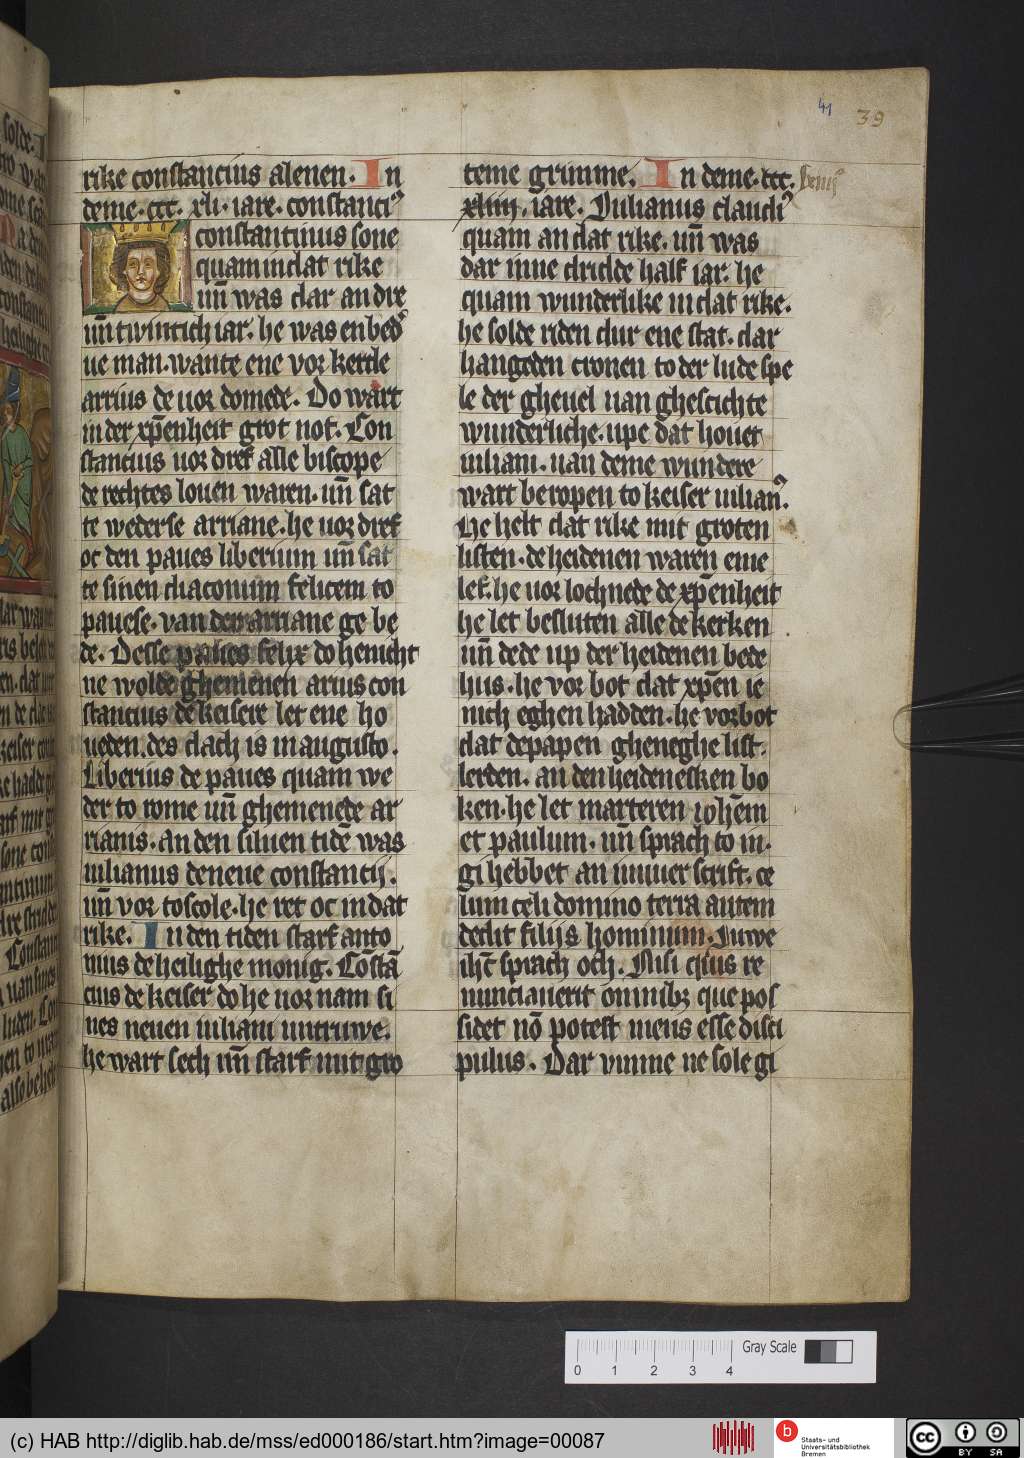 41 39
rike constancius alenen. In
deme. ccc. xli. iare. constanciꝰ
constantinus sone
quam in dat rike
un̄ was dar an dre
un̄ twintich iar. he was en bedꝰ
ue man. wante ene vor kerde
arrius de uor domede. Do wart
in der xp̄enheit grot not. Con
stancius uor dref alle biscope
de rechtes louen waren. un̄ sat
te wederse arriane. he uor dref
oc den paues liberium un̄ sat
te sinen diaconum felicem to
pauese. van den arriane ge be
de. Desse paues felix do he nicht
ne wolde ghemenen arius con
stancius de keisere let ene ho
ueden. des dach is in augusto.
Liberius de paues quam we
der to rome un̄ ghemenede ar
rianis. An den siluen tidē was
iulianus de neue constancij.
un̄ vor to scole. he ret oc in dat
rike. In den tiden starf anto
nius de heilighe monig. Cōstā
cius de keiser do he uor nam si
nes neuen iuliani untruwe.
he wart sech un̄ starf mit gro
teme grimme. In deme. ccc.
xliiij. iare. Julianus claudiꝰ
quam an dat rike. un̄ was
dar inne dridde half iar. he
quam wunderlike in dat rike.
he solde riden dur ene stat. dar
hangeden cronen to der lude spe
le der gheuel uan ghescichte
wunderliche. upe dat houet
iuliani. uan deme wundere
wart beropen to keiser iulianꝰ.
He helt dat rike mit groten
listen. de heidenen waren eme
lef. he uor lochnede de xp̄enheit
he let besluten alle de kerken
un̄ dede up der heidenen bede
hus. he vor bot dat xp̄en ie
nich eghen hadden. he vorbot
dat de papen gheneghe list.
lerden. an den heidenesken bo
ken. he let marteren ioh̄em
et paulum. un̄ sprach to in.
gi hebbet an iuwer scrift. ce
lum celi domino terra autem
dedit filijs hominum. Juwe
ih̄c sprach och. Nisi quis re
nunciauerit omnibꝫ que pos
sidet nō potest meus esse disci
pulus. Dar vmme ne sole gi
Gray Scale
0 1 2 3 4
(c) HAB http://diglib.hab.de/mss/ed000186/start.htm?image=00087
b
Staats- und
Universitätsbibliothek
Bremen
cc
BY SA